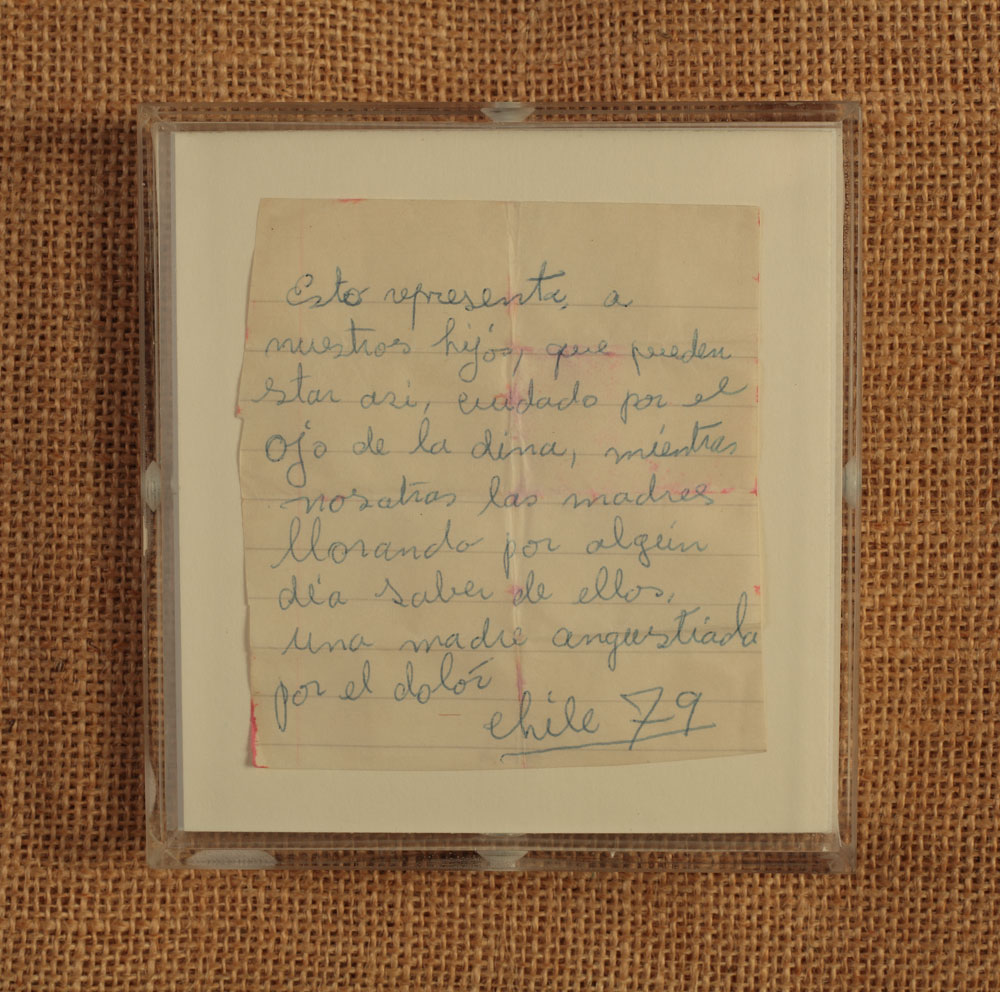 Esto representa a
nuestros hijós, que pueden
star asi, cuidado por el
ojo de la dina, mientras
nosotras las madres
llorando por algún
día saber de ellos.
una madre angustiada
por el dolór
chile 79